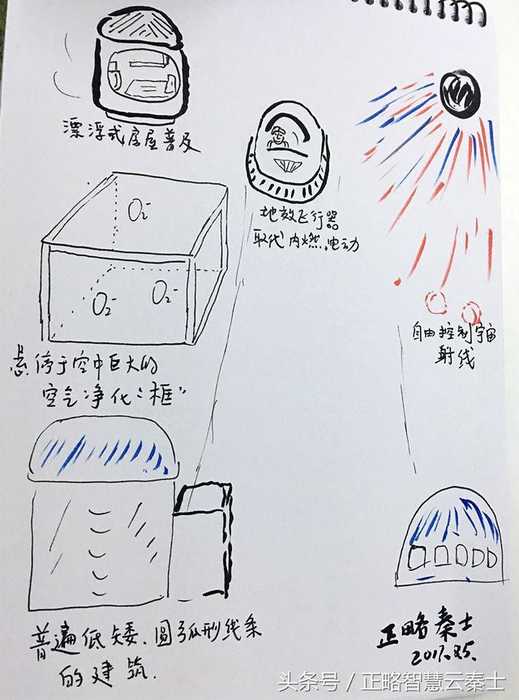 漂浮式房屋普及
地效飞行器
取代内燃、电动
O₂⁻
O₂⁻
O₂⁻
自由控制宇宙
射线
悬停于空中巨大的
空气净化“框”
普遍低矮、圆弧形线条
的建筑.
正略秦士
2017.8.5.
头条号 / 正略智慧云秦士